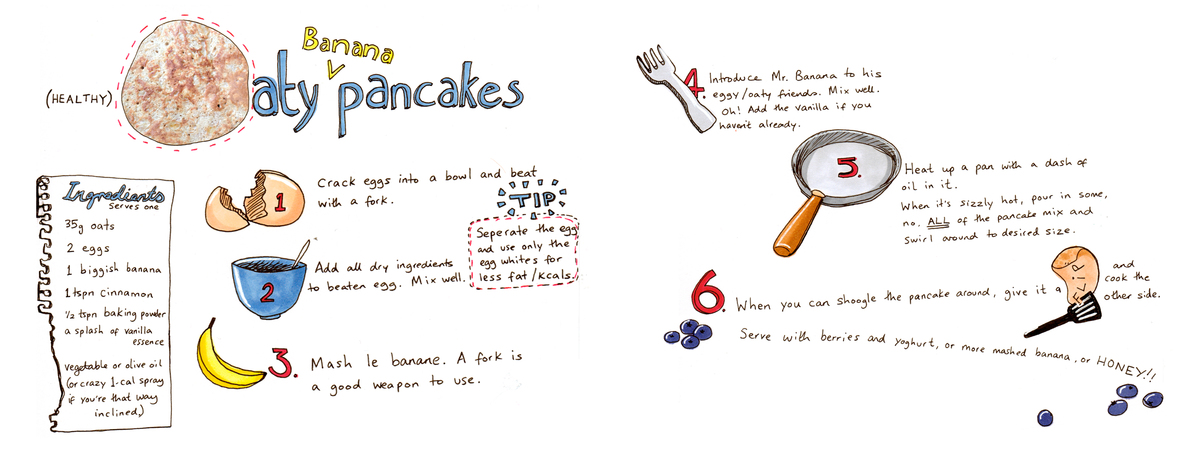 (HEALTHY)
Banana
aty pancakes
Ingredients
Serves one
35g oats
2 eggs
1 biggish banana
1 tspn cinnamon
1/2 tspn baking powder
a splash of vanilla
essence
vegetable or olive oil
(or crazy 1-cal spray
if you're that way
inclined)
1
Crack eggs into a bowl and beat
with a fork.
TIP
Seperate the egg
and use only the
egg whites for
less fat/kcals.
2
Add all dry ingredients
to beaten egg. Mix well.
3.
Mash le banane. A fork is
a good weapon to use.
4.
Introduce Mr. Banana to his
eggy/oaty friends. Mix well.
Oh! Add the vanilla if you
haven't already.
5.
Heat up a pan with a dash of
oil in it.
When it's sizzly hot, pour in some,
no, ALL of the pancake mix and
swirl around to desired size.
6.
When you can shoogle the pancake around, give it a
FLIP
and
cook the
other side.
Serve with berries and yoghurt, or more mashed banana, or HONEY!!